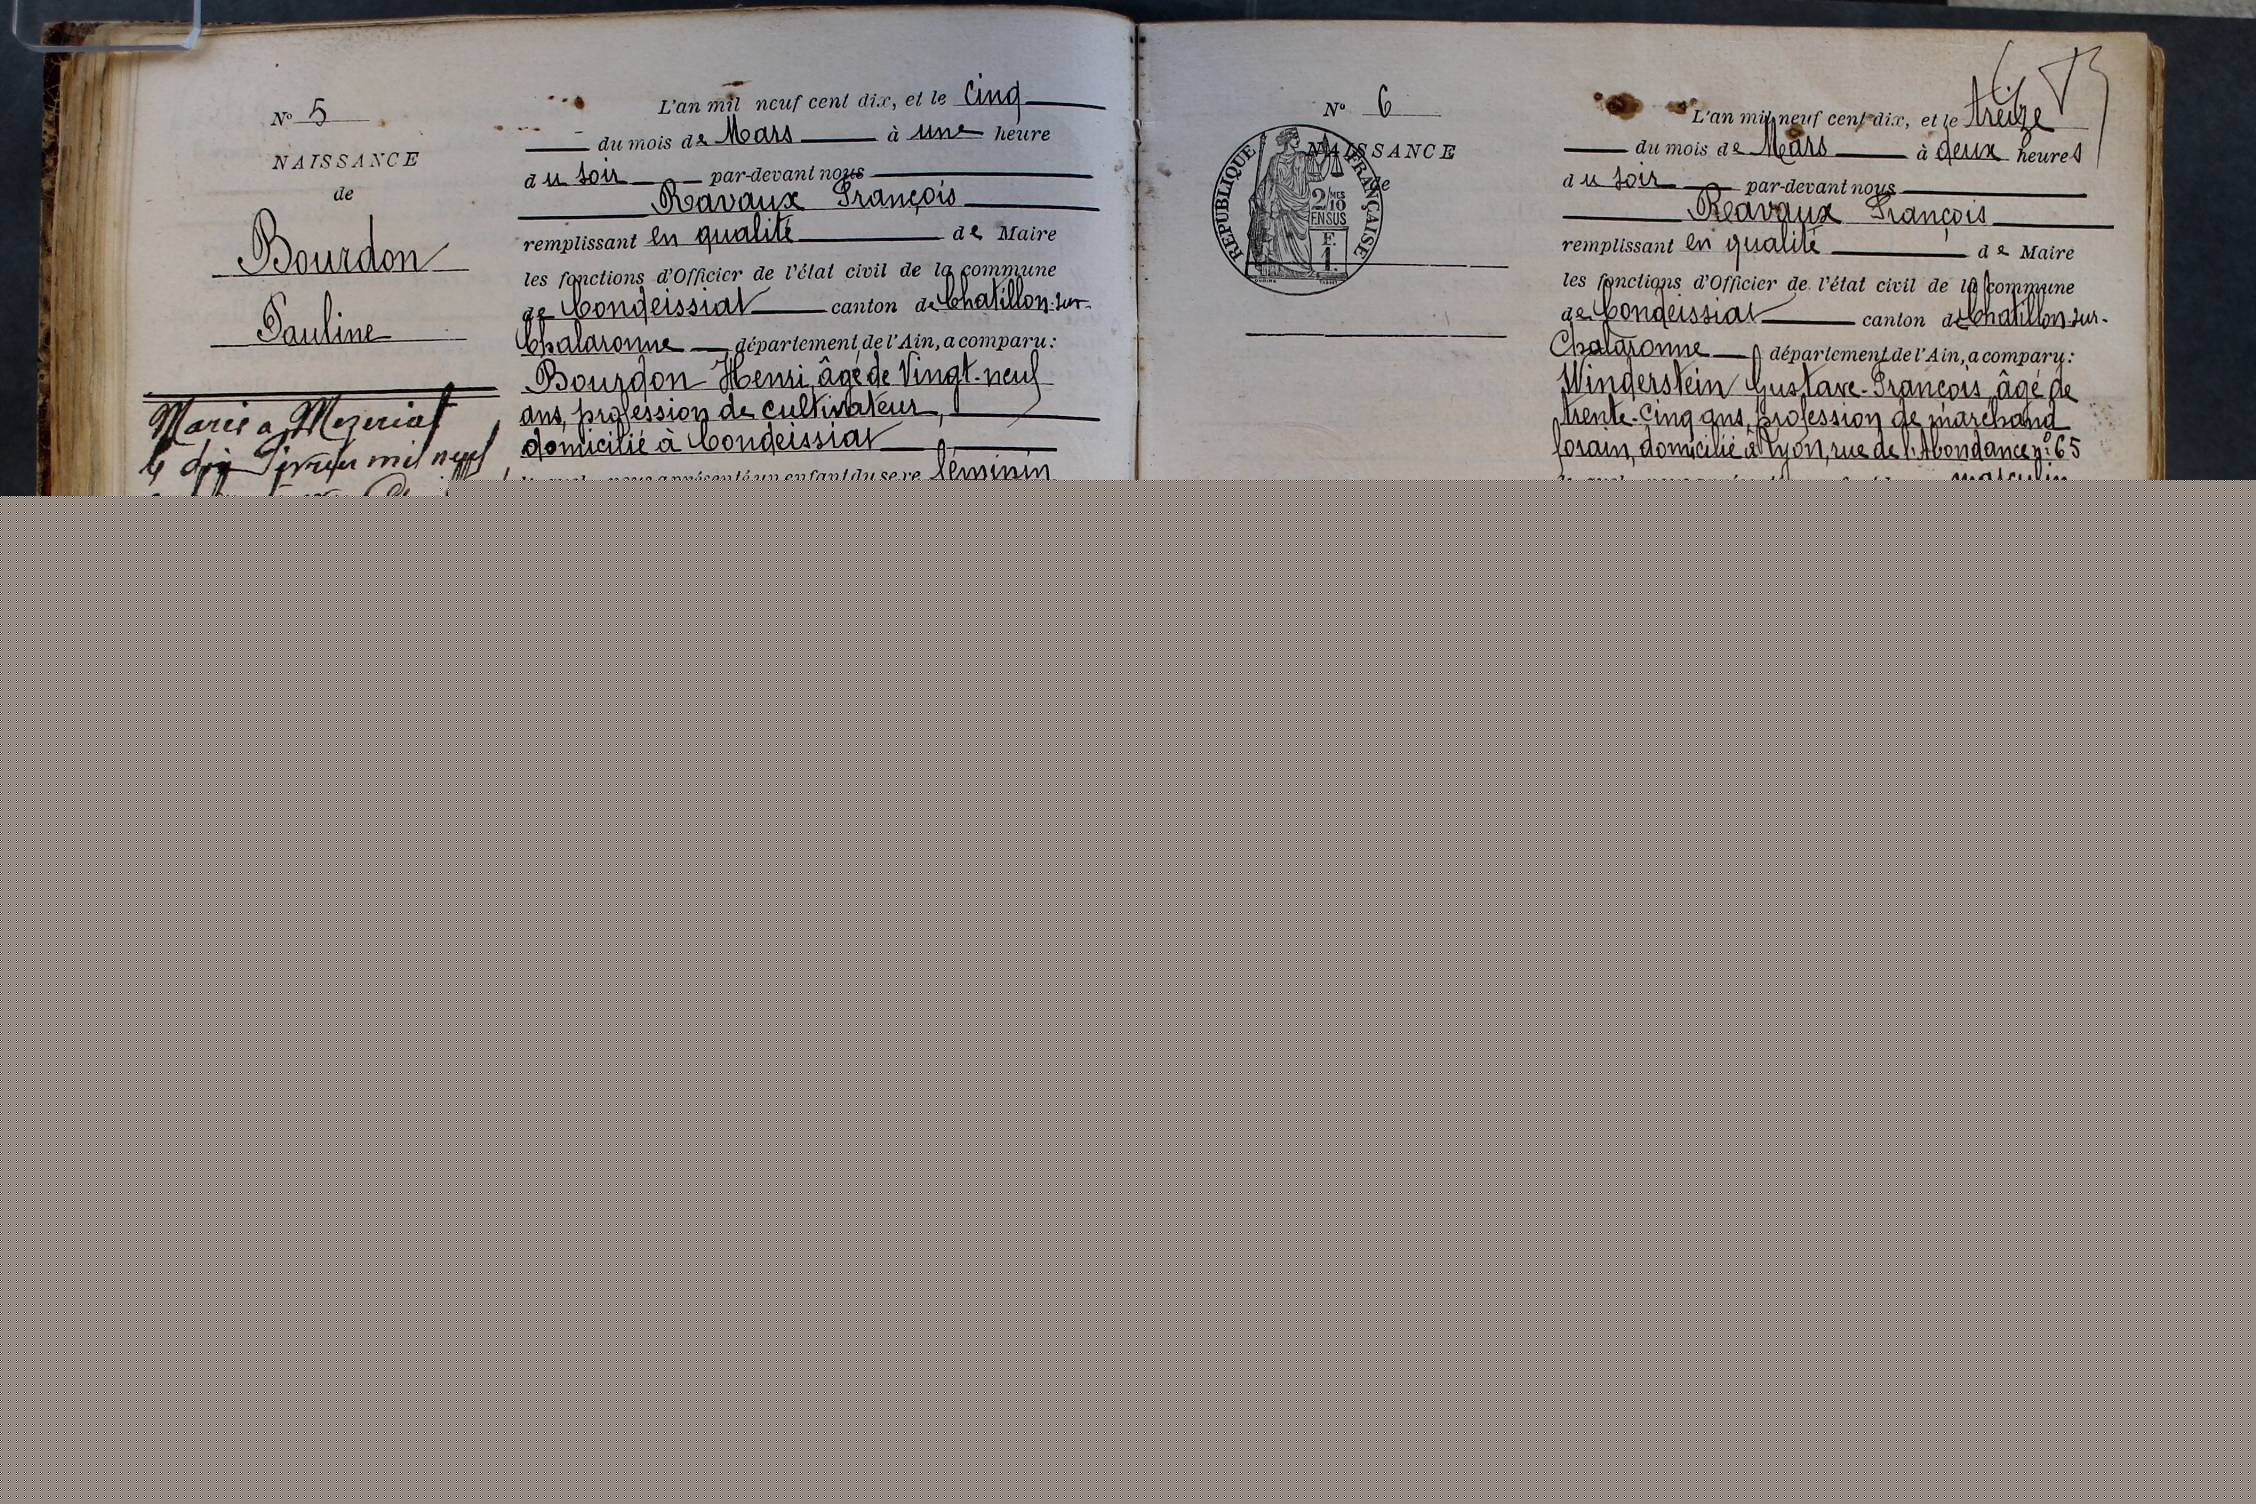 N° 5
NAISSANCE
de
Bourdon
Pauline
Marié a Mezeriat
le dix Février mil neuf
L'an mil neuf cent dix, et le cinq
du mois de Mars à une heure
du soir par-devant nous
Ravaux François
remplissant en qualité de Maire
les fonctions d'Officier de l'état civil de la commune
de Condeissiat canton de Chatillon-sur-
Chalaronne département de l'Ain, a comparu:
Bourdon Henri, âgé de Vingt-neuf
ans, profession de cultivateur,
domicilié à Condeissiat
lequel nous a présenté un enfant du sexe féminin
N° 6
NAISSANCE
de
RÉPUBLIQUE FRANÇAISE
2/10 MES
EN SUS
F.
1.
L'an mil neuf cent dix, et le treize
du mois de Mars à deux heures
du soir par-devant nous
Ravaux François
remplissant en qualité de Maire
les fonctions d'Officier de l'état civil de la commune
de Condeissiat canton de Chatillon-sur-
Chalaronne département de l'Ain, a comparu:
Winderstein Gustave-François, âgé de
trente-cinq ans, profession de marchand
forain, domicilié à Lyon, rue de l'Abondance n° 65
masculin